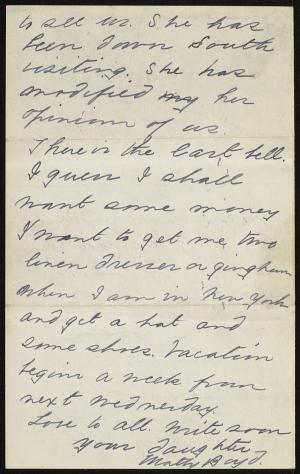 to see us. She has
been down South
visiting. She has
modified my her
opinion of us.
There is the last bell.
I guess I shall
want some money
I want to get me two
linen dresses or gingham
when I am in New York
and get a hat and
some shoes. Vacation
begins a week from
next Wednesday.
Love to all. Write soon
Your daughter
Matty Boyd